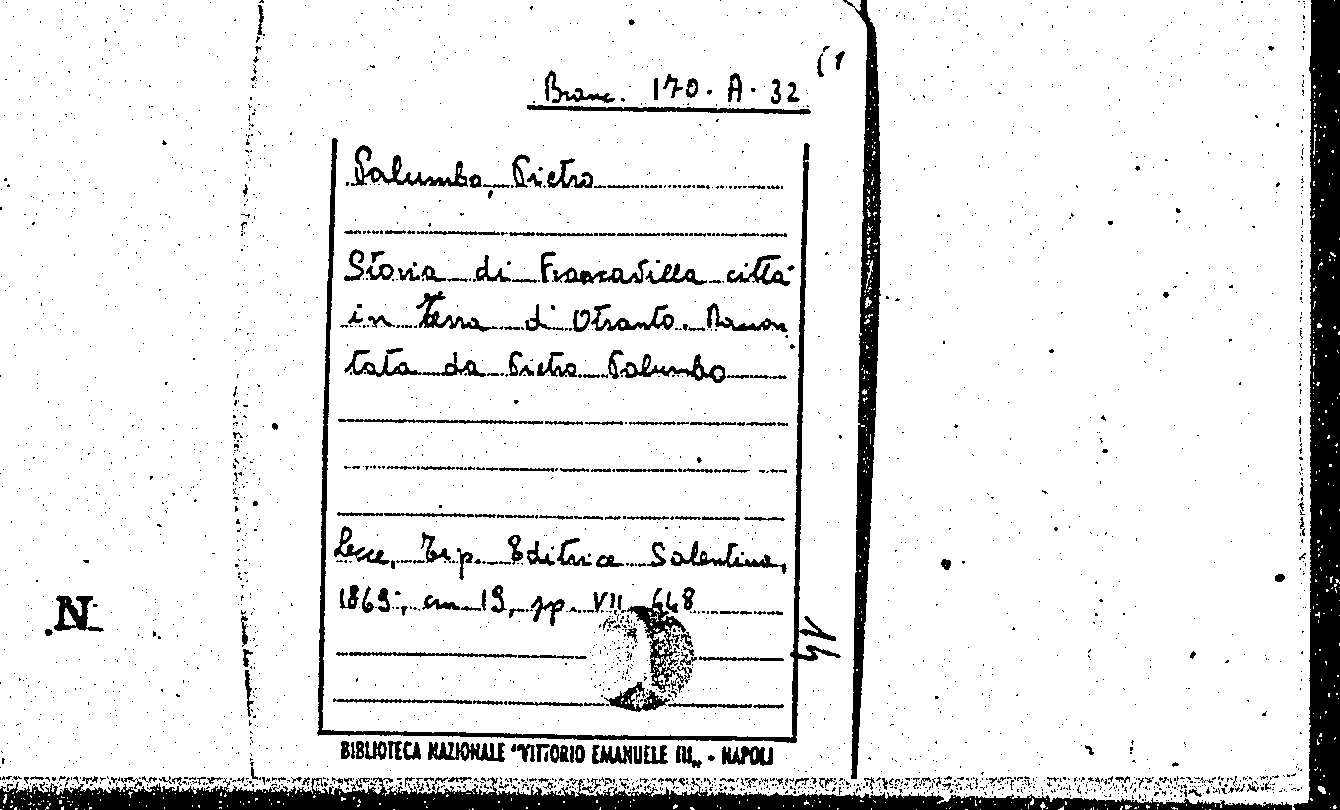 Branc. 170. A. 32
Palumbo, Pietro
Storia di Francavilla città
in Terra di Otranto. Raccon
tata da Pietro Palumbo
Lecce, Tip. Editrice Salentina,
1869, cm 19, pp. VII 448
N
BIBLIOTECA NAZIONALE "VITTORIO EMANUELE III„ - NAPOLI